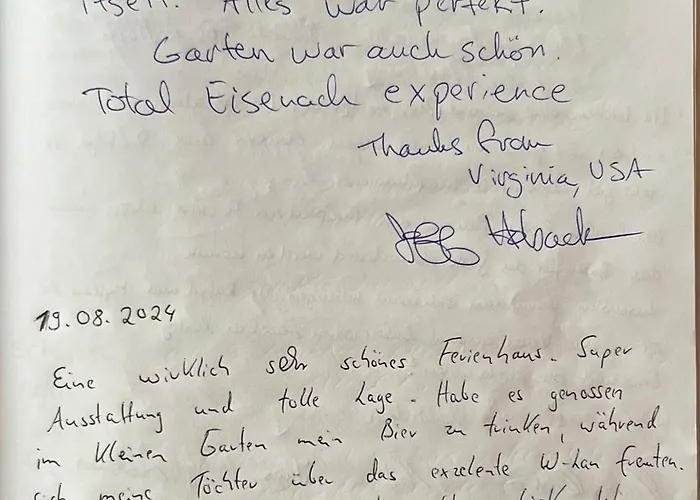 itself. Alles war perfekt.
Garten war auch schön.
Total Eisenach experience
Thanks from
Virginia, USA
Jeff
19.08.2024
Eine wirklich sehr schönes Ferienhaus. Super
Ausstattung und tolle Lage. Habe es genossen
im kleinen Garten mein Bier zu trinken, während
sich meine Töchter über das exzelente W-Lan freuten.